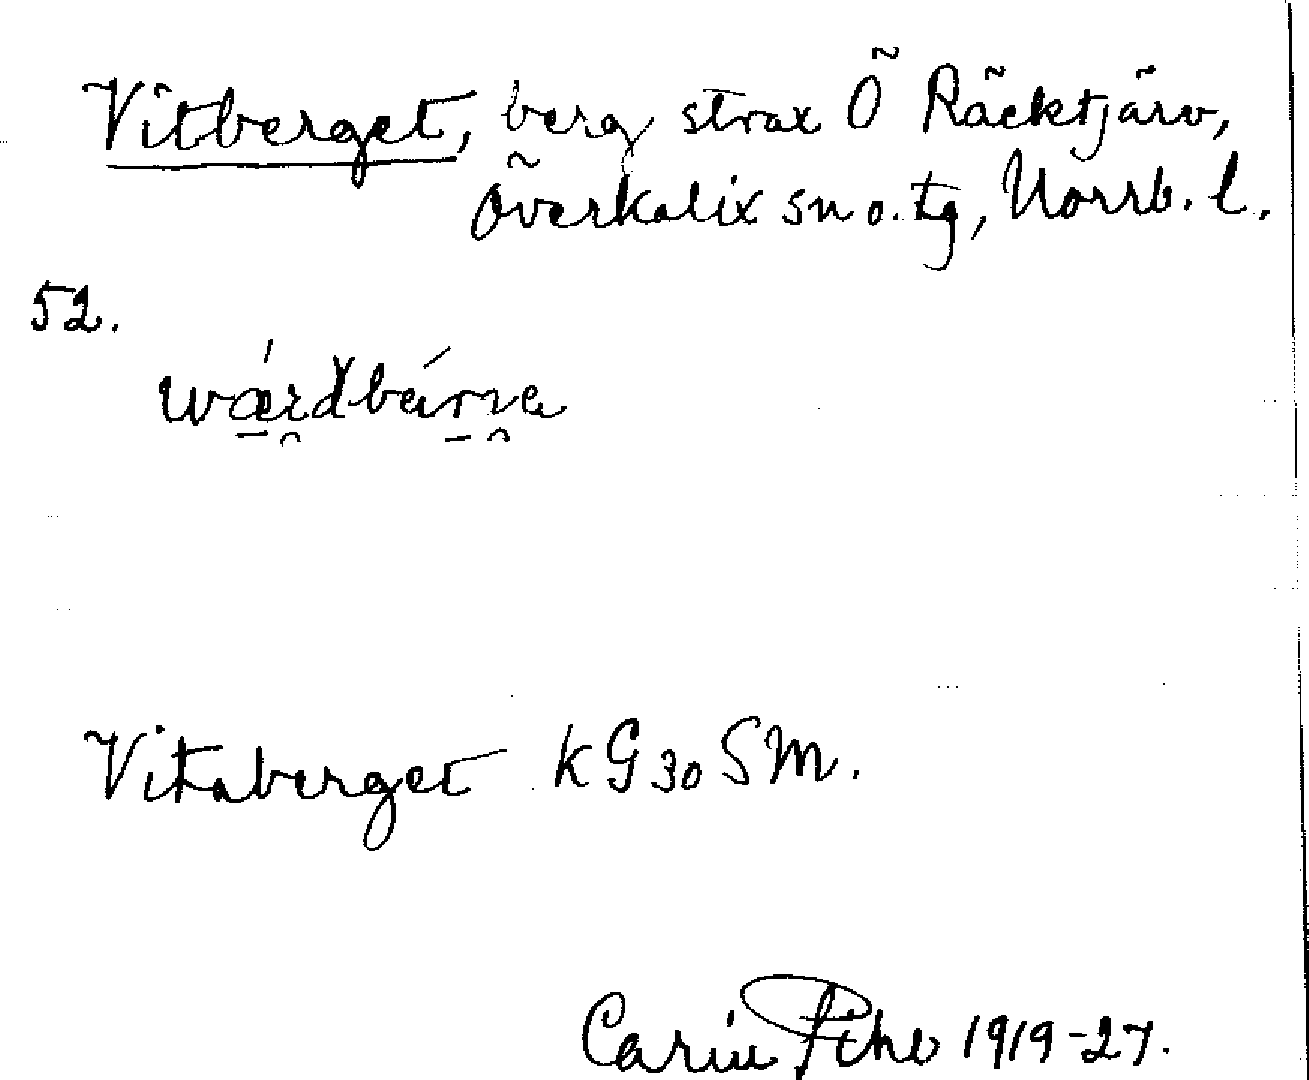 Vitberget, berg strax Ö Räcktjärv,
Överkalix sn o. tg, Norrb. l.
52.
Vitaberget KG 30 SM.
Carin Pihl 1919-27.